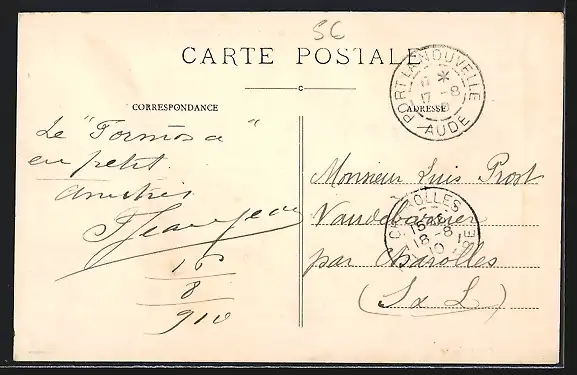 36
CARTE POSTALE
PORT-LA-NOUVELLE
11 *
17 -8
10
AUDE
CORRESPONDANCE
ADRESSE
Le "Formosa"
en petit.
Amitiés
16
8
910
Monsieur Luis Prost
Vaudebarrier
par Charolles
(S & L)
CHAROLLES
15
18 -8
10